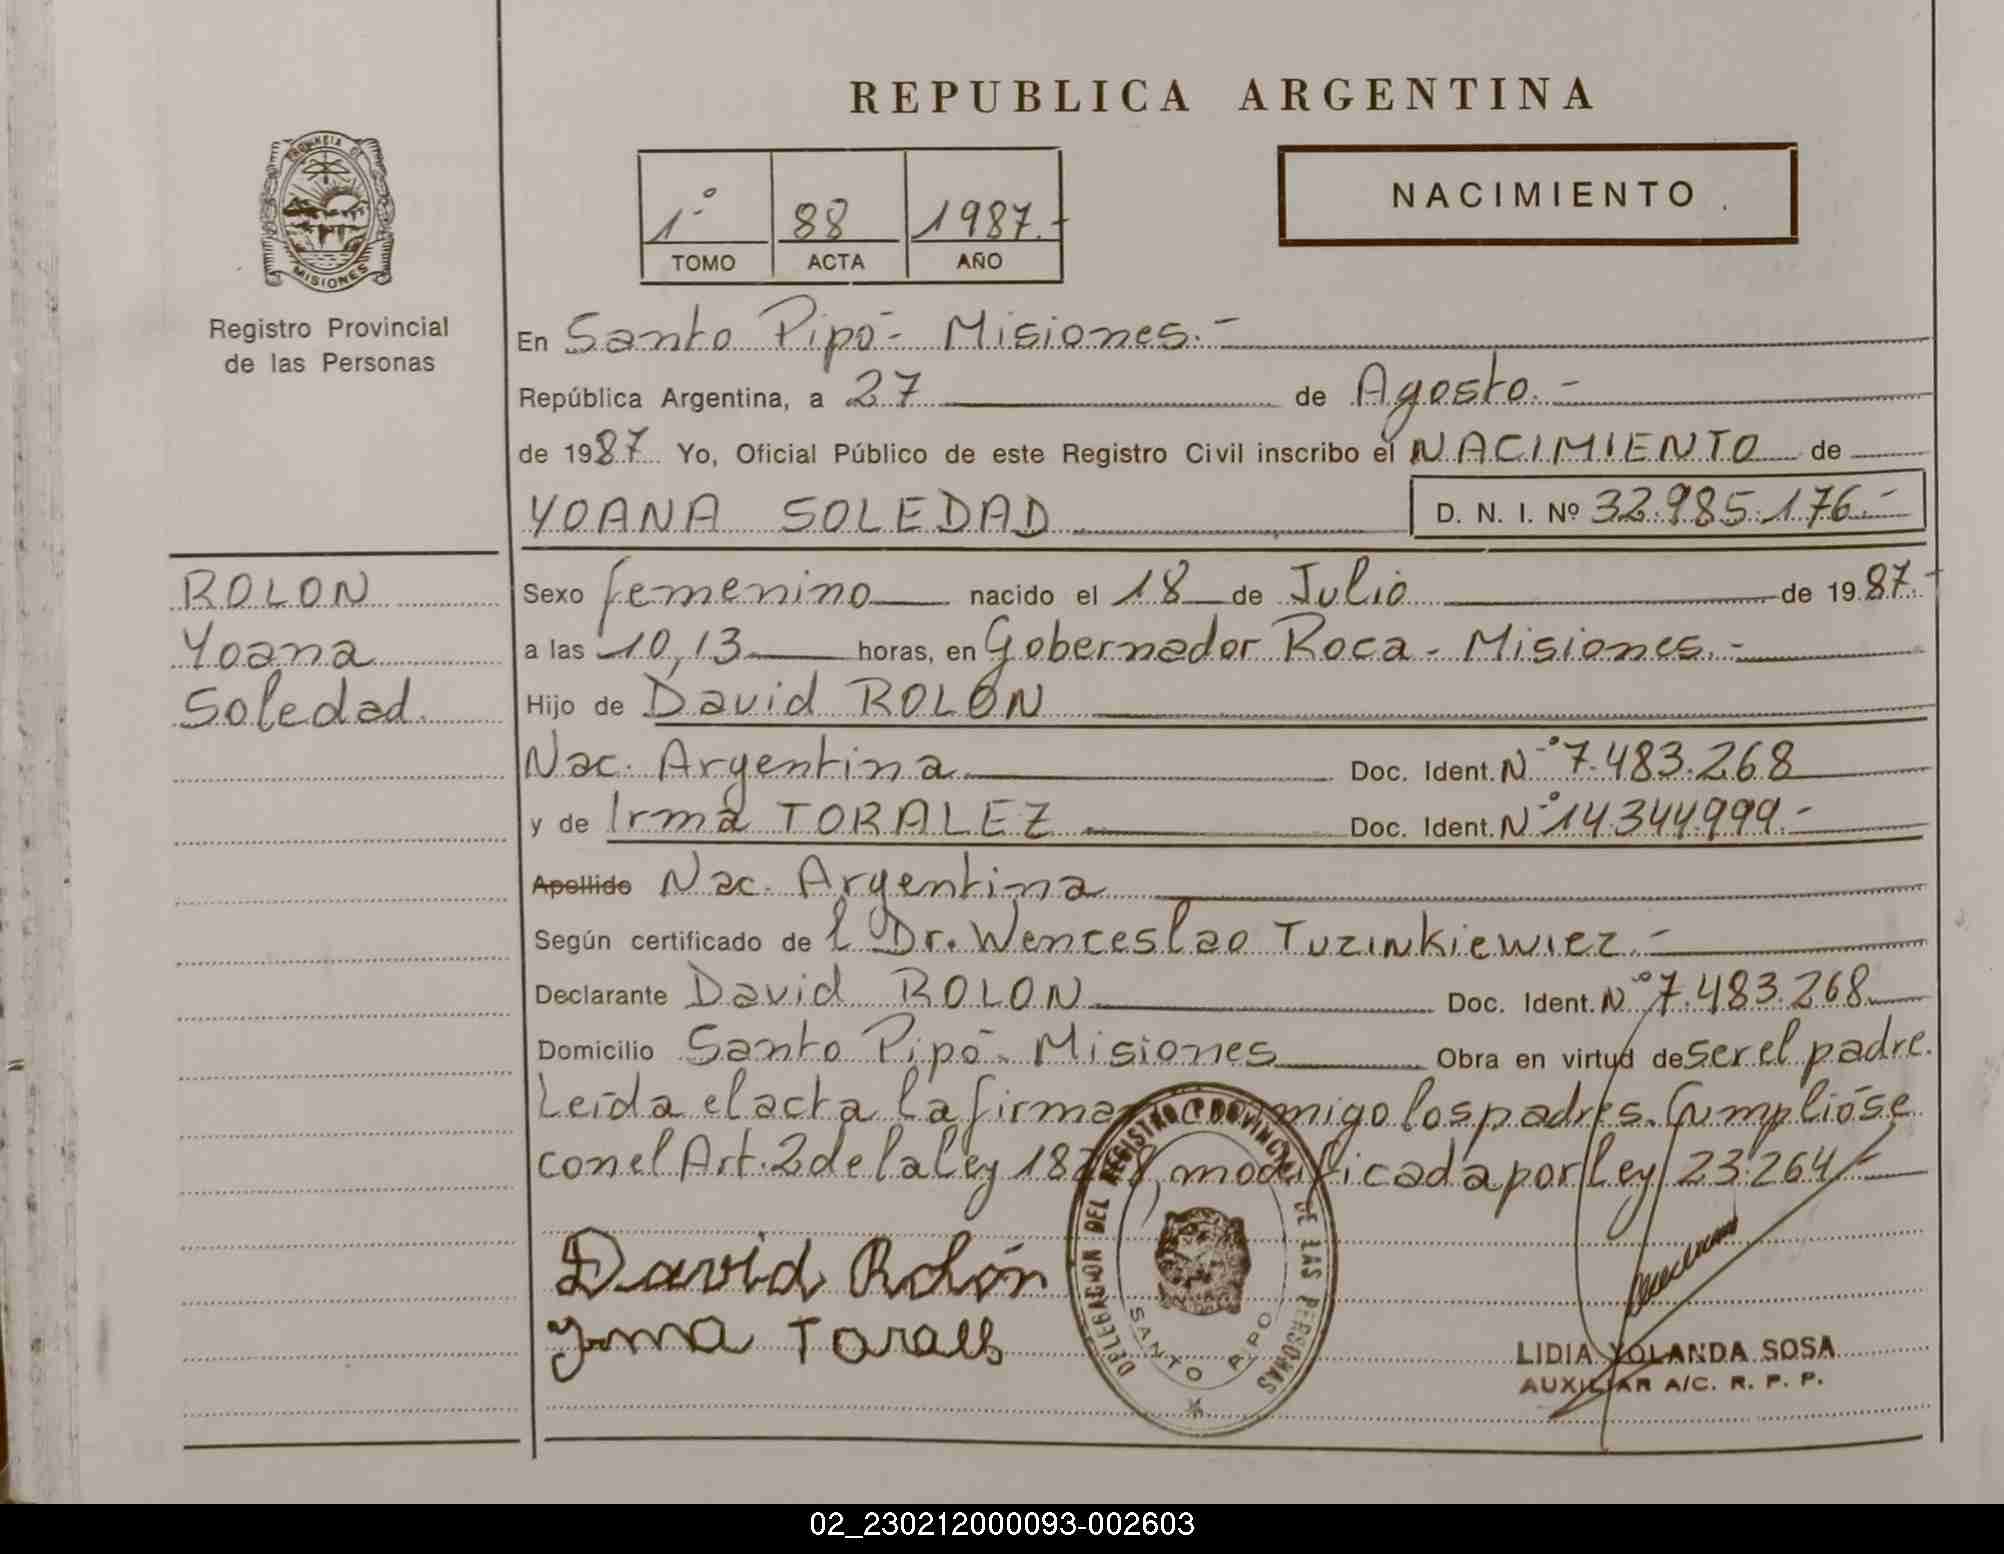 REPUBLICA ARGENTINA
PROVINCIA DE
MISIONES
Registro Provincial
de las Personas
1º 88 1987.-
TOMO ACTA AÑO
NACIMIENTO
En Santo Pipó - Misiones.-
República Argentina, a 27 de Agosto.-
de 1987 Yo, Oficial Público de este Registro Civil inscribo el NACIMIENTO de
YOANA SOLEDAD D. N. I. Nº 32.985.176.-
ROLON
Yoana
Soledad.
Sexo femenino nacido el 18 de Julio de 1987.-
a las 10,13 horas, en Gobernador Roca - Misiones.-
Hijo de David ROLON
Nac. Argentina Doc. Ident. Nº 7.483.268
y de Irma TORALEZ Doc. Ident. Nº 14.344.999.-
Apellido Nac. Argentina
Según certificado de l Dr. Wenceslao TUZINKIEWIEZ.-
Declarante David ROLON Doc. Ident. Nº 7.483.268
Domicilio Santo Pipó - Misiones Obra en virtud de ser el padre.
Leída el acta la firman conmigo los padres. Cumplióse
con el Art. 2 de la Ley modificada por Ley 23.264.-
David Rolón
Irma
DELEGACION DEL REGISTRO PROVINCIAL DE LAS PERSONAS
SANTO PIPO
LIDIA YOLANDA SOSA
AUXILIAR A/C. R. P. P.
02_230212000093-002603